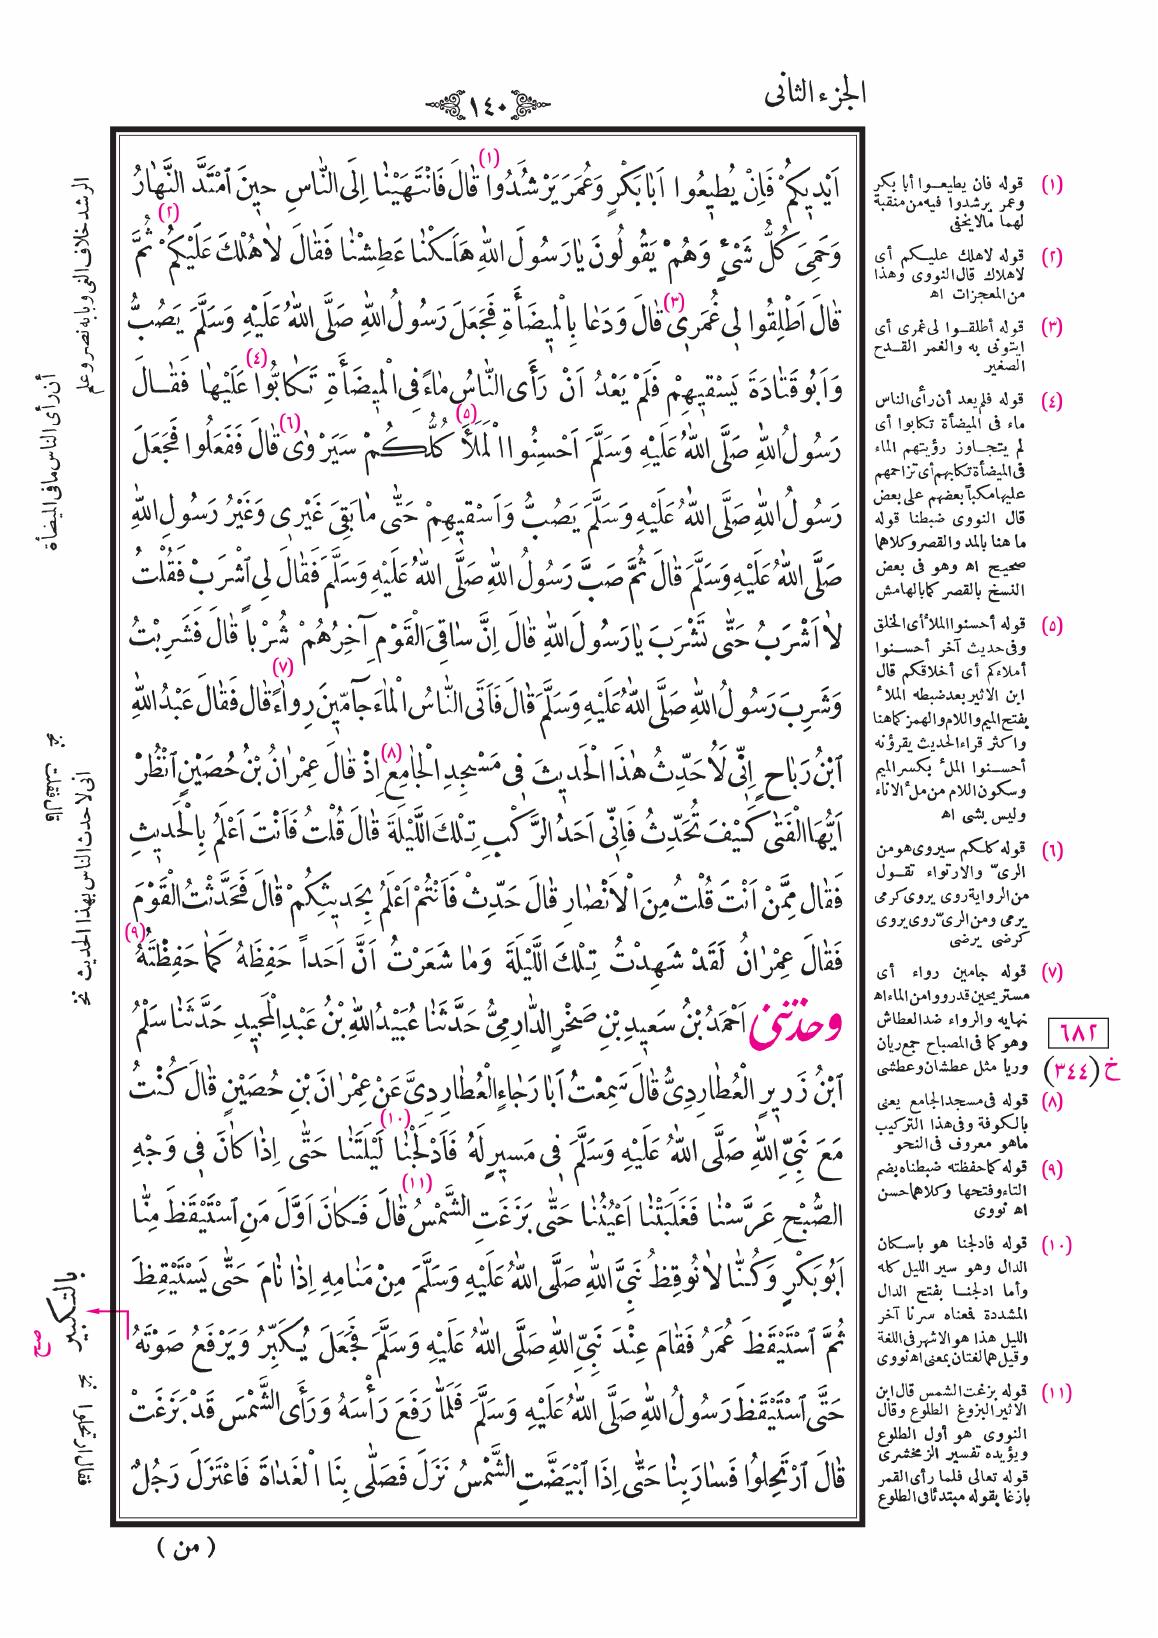 الجزء الثانى
١٤٠
اَيْدِيكُمْ فَاِنْ يُطِيعُوا اَبَا بَكْرٍ وَعُمَرَ يَرْشُدُوا (١) قَالَ فَانْتَهَيْنَا اِلَى النَّاسِ حِينَ امْتَدَّ النَّهَارُ
وَحَمِىَ كُلُّ شَىْءٍ وَهُمْ يَقُولُونَ يَا رَسُولَ اللهِ هَلَكْنَا عَطِشْنَا فَقَالَ لَا هُلْكَ عَلَيْكُمْ (٢) ثُمَّ
قَالَ اَطْلِقُوا لِى غُمَرِى (٣) قَالَ وَدَعَا بِالْمِيضَأَةِ فَجَعَلَ رَسُولُ اللهِ صَلَّى اللهُ عَلَيْهِ وَسَلَّمَ يَصُبُّ
وَاَبُو قَتَادَةَ يَسْقِيهِمْ فَلَمْ يَعْدُ اَنْ رَأَى النَّاسُ مَاءً فِى الْمِيضَأَةِ تَكَابُّوا (٤) عَلَيْهَا فَقَالَ
رَسُولُ اللهِ صَلَّى اللهُ عَلَيْهِ وَسَلَّمَ اَحْسِنُوا الْمَلَأَ (٥) كُلُّكُمْ سَيَرْوَى (٦) قَالَ فَفَعَلُوا فَجَعَلَ
رَسُولُ اللهِ صَلَّى اللهُ عَلَيْهِ وَسَلَّمَ يَصُبُّ وَاَسْقِيهِمْ حَتَّى مَا بَقِىَ غَيْرِى وَغَيْرُ رَسُولِ اللهِ
صَلَّى اللهُ عَلَيْهِ وَسَلَّمَ قَالَ ثُمَّ صَبَّ رَسُولُ اللهِ صَلَّى اللهُ عَلَيْهِ وَسَلَّمَ فَقَالَ لِى اشْرَبْ فَقُلْتُ
لَا اَشْرَبُ حَتَّى تَشْرَبَ يَا رَسُولَ اللهِ قَالَ اِنَّ سَاقِىَ الْقَوْمِ آخِرُهُمْ شُرْباً قَالَ فَشَرِبْتُ
وَشَرِبَ رَسُولُ اللهِ صَلَّى اللهُ عَلَيْهِ وَسَلَّمَ قَالَ فَاَتَى النَّاسُ الْمَاءَ جَامِّينَ رِوَاءً (٧) قَالَ فَقَالَ عَبْدُ اللهِ
ابْنُ رَبَاحٍ اِنِّى لَاُحَدِّثُ هٰذَا الْحَدِيثَ فِى مَسْجِدِ الْجَامِعِ (٨) اِذْ قَالَ عِمْرَانُ بْنُ حُصَيْنٍ انْظُرْ
اَيُّهَا الْفَتَى كَيْفَ تُحَدِّثُ فَاِنِّى اَحَدُ الرَّكْبِ تِلْكَ اللَّيْلَةَ قَالَ قُلْتُ فَاَنْتَ اَعْلَمُ بِالْحَدِيثِ
فَقَالَ مِمَّنْ اَنْتَ قُلْتُ مِنَ الْاَنْصَارِ قَالَ حَدِّثْ فَاَنْتُمْ اَعْلَمُ بِحَدِيثِكُمْ قَالَ فَحَدَّثْتُ الْقَوْمَ
فَقَالَ عِمْرَانُ لَقَدْ شَهِدْتُ تِلْكَ اللَّيْلَةَ وَمَا شَعَرْتُ اَنَّ اَحَداً حَفِظَهُ كَمَا حَفِظْتُهُ (٩)
وحدثنى اَحْمَدُ بْنُ سَعِيدِ بْنِ صَخْرٍ الدَّارِمِىُّ حَدَّثَنَا عُبَيْدُ اللهِ بْنُ عَبْدِ الْمَجِيدِ حَدَّثَنَا سَلْمُ
ابْنُ زَرِيرٍ الْعُطَارِدِىُّ قَالَ سَمِعْتُ اَبَا رَجَاءٍ الْعُطَارِدِىَّ عَنْ عِمْرَانَ بْنِ حُصَيْنٍ قَالَ كُنْتُ
مَعَ نَبِىِّ اللهِ صَلَّى اللهُ عَلَيْهِ وَسَلَّمَ فِى مَسِيرٍ لَهُ فَاَدْلَجْنَا (١٠) لَيْلَتَنَا حَتَّى اِذَا كَانَ فِى وَجْهِ
الصُّبْحِ عَرَّسْنَا فَغَلَبَتْنَا اَعْيُنُنَا حَتَّى بَزَغَتِ الشَّمْسُ (١١) قَالَ فَكَانَ اَوَّلَ مَنِ اسْتَيْقَظَ مِنَّا
اَبُو بَكْرٍ وَكُنَّا لَا نُوقِظُ نَبِىَّ اللهِ صَلَّى اللهُ عَلَيْهِ وَسَلَّمَ مِنْ مَنَامِهِ اِذَا نَامَ حَتَّى يَسْتَيْقِظَ
ثُمَّ اسْتَيْقَظَ عُمَرُ فَقَامَ عِنْدَ نَبِىِّ اللهِ صَلَّى اللهُ عَلَيْهِ وَسَلَّمَ فَجَعَلَ يُكَبِّرُ وَيَرْفَعُ صَوْتَهُ
حَتَّى اسْتَيْقَظَ رَسُولُ اللهِ صَلَّى اللهُ عَلَيْهِ وَسَلَّمَ فَلَمَّا رَفَعَ رَأْسَهُ وَرَأَى الشَّمْسَ قَدْ بَزَغَتْ
قَالَ ارْتَحِلُوا فَسَارَ بِنَا حَتَّى اِذَا ابْيَضَّتِ الشَّمْسُ نَزَلَ فَصَلَّى بِنَا الْغَدَاةَ فَاعْتَزَلَ رَجُلٌ
( من )
(١) قوله فان يطيعوا أبا بكر
وعمر يرشدوا فيه من منقبة
لهما مالا يخفى
(٢) قوله لاهلك عليكم أى
لاهلاك قال النووى وهذا
من المعجزات اه
(٣) قوله أطلقوا لى غمرى أى
ايتونى به والغمر القدح
الصغير
(٤) قوله فلم يعد أن رأى الناس
ماء فى الميضأة تكابوا أى
لم يتجاوز رؤيتهم الماء
فى الميضأة تكابهم أى تزاحمهم
عليها مكباً بعضهم على بعض
قال النووى ضبطنا قوله
ما هنا بالمد والقصر وكلاهما
صحيح اه وهو فى بعض
النسخ بالقصر كما بالهامش
(٥) قوله أحسنوا الملأ أى الخلق
وفى حديث آخر أحسنوا
أملاءكم أى أخلاقكم قال
ابن الاثير بعد ضبطه الملأ
بفتح الميم واللام والهمز كما هنا
واكثر قراء الحديث يقرؤنه
أحسنوا الملء بكسر الميم
وسكون اللام من ملء الاناء
وليس بشى اه
(٦) قوله كلكم سيروى هو من
الرىّ والارتواء تقول
من الرواية روى يروى كرمى
يرمى ومن الرىّ روى يروى
كرضى يرضى
(٧) قوله جامين رواء أى
مستريحين قد رووا من الماء اه
نهايه والرواء ضد العطاش
وهو كما فى المصباح جمع ريان
وريا مثل عطشان وعطشى
(٨) قوله فى مسجد الجامع يعنى
بالكوفة وفى هذا التركيب
ما هو معروف فى النحو
(٩) قوله كما حفظته ضبطناه بضم
التاء وفتحها وكلاهما حسن
اه نووى
(١٠) قوله فادلجنا هو باسكان
الدال وهو سير الليل كله
وأما ادلجنا بفتح الدال
المشددة فمعناه سرنا آخر
الليل هذا هو الاشهر فى اللغة
وقيل هما لغتان بمعنى اه نووى
(١١) قوله بزغت الشمس قال ابن
الاثير البزوغ الطلوع وقال
النووى هو أول الطلوع
ويؤيده تفسير الزمخشرى
قوله تعالى فلما رأى القمر
بازغا بقوله مبتدئا فى الطلوع
٦٨٢
خ (٣٤٤)
الرشد خلاف الغى وبابه نصر وعلم
أن رأى الناس ما فى الميضأة
قال فقلت نخ
انى لاحدث الناس بهذا الحديث نخ
بالتكبير
صح
فقال ارتحلوا نخ